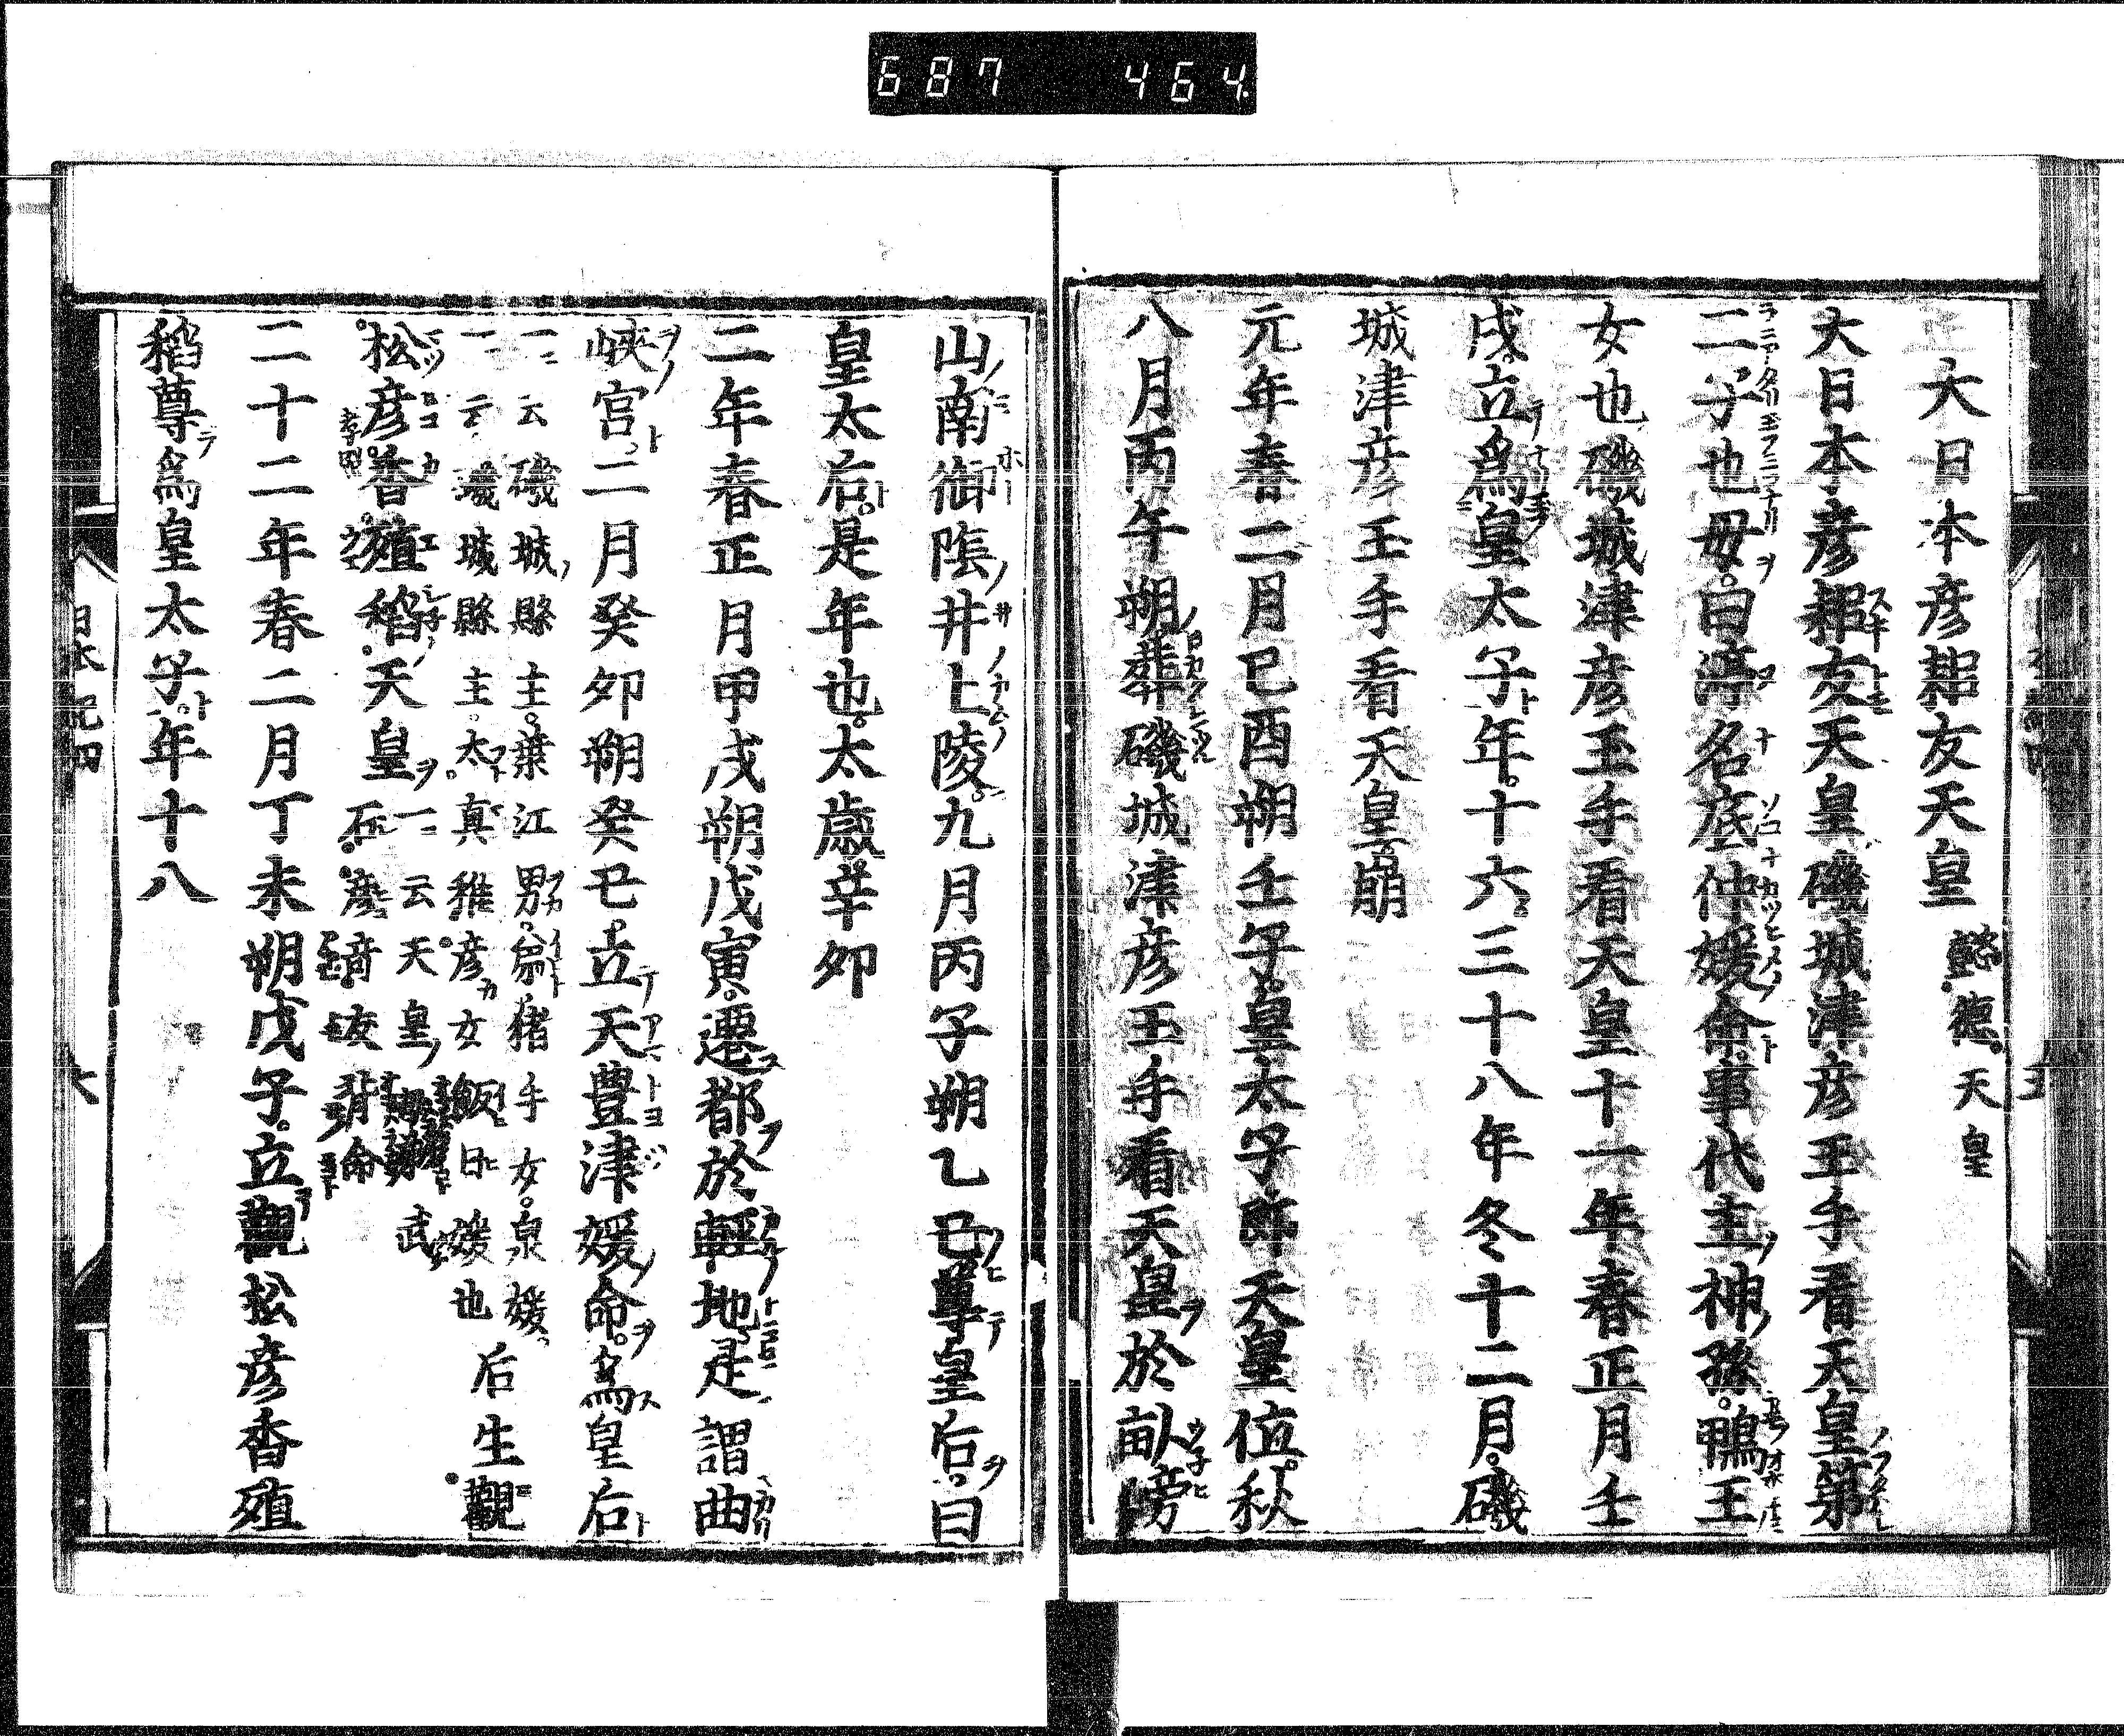 687 464
大日本彦耜友天皇 懿德天皇
大日本彦耜友天皇磯城津彦玉手看天皇第
二子也母曰渟名底仲媛命事代主神孫鴨王
女也磯城津彦玉手看天皇十一年春正月壬
戌立爲皇太子年十六三十八年冬十二月磯
城津彦玉手看天皇崩
元年春二月己酉朔壬子皇太子即天皇位秋
八月丙午朔葬磯城津彦玉手看天皇於畝傍
山南御陰井上陵九月丙子朔乙巳尊皇后曰
皇太后是年也太歳辛卯
二年春正月甲戌朔戊寅遷都於輕地是謂曲
峽宮二月癸卯朔癸丑立天豊津媛命爲皇后
一云磯城縣主葉江男弟猪手女泉媛
一云磯城縣主太真稚彦女飯日媛也
后生觀
松彦香殖稻天皇
一云天皇
武
石
背命
二十二年春二月丁未朔戊子立觀松彦香殖
稻尊爲皇太子年十八